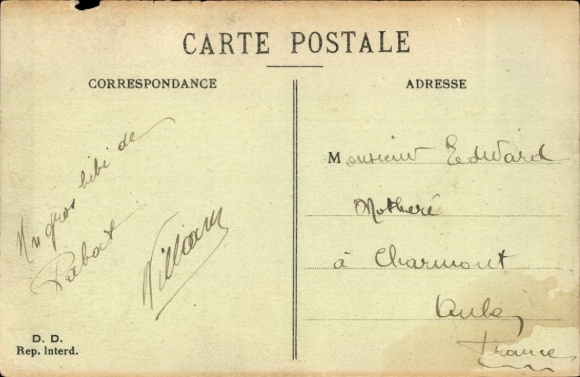 CARTE POSTALE
CORRESPONDANCE
ADRESSE
Un gros bibi de
Rabat
William
Monsieur Edward
à Charmont
Aube
France
D. D.
Rep. Interd.